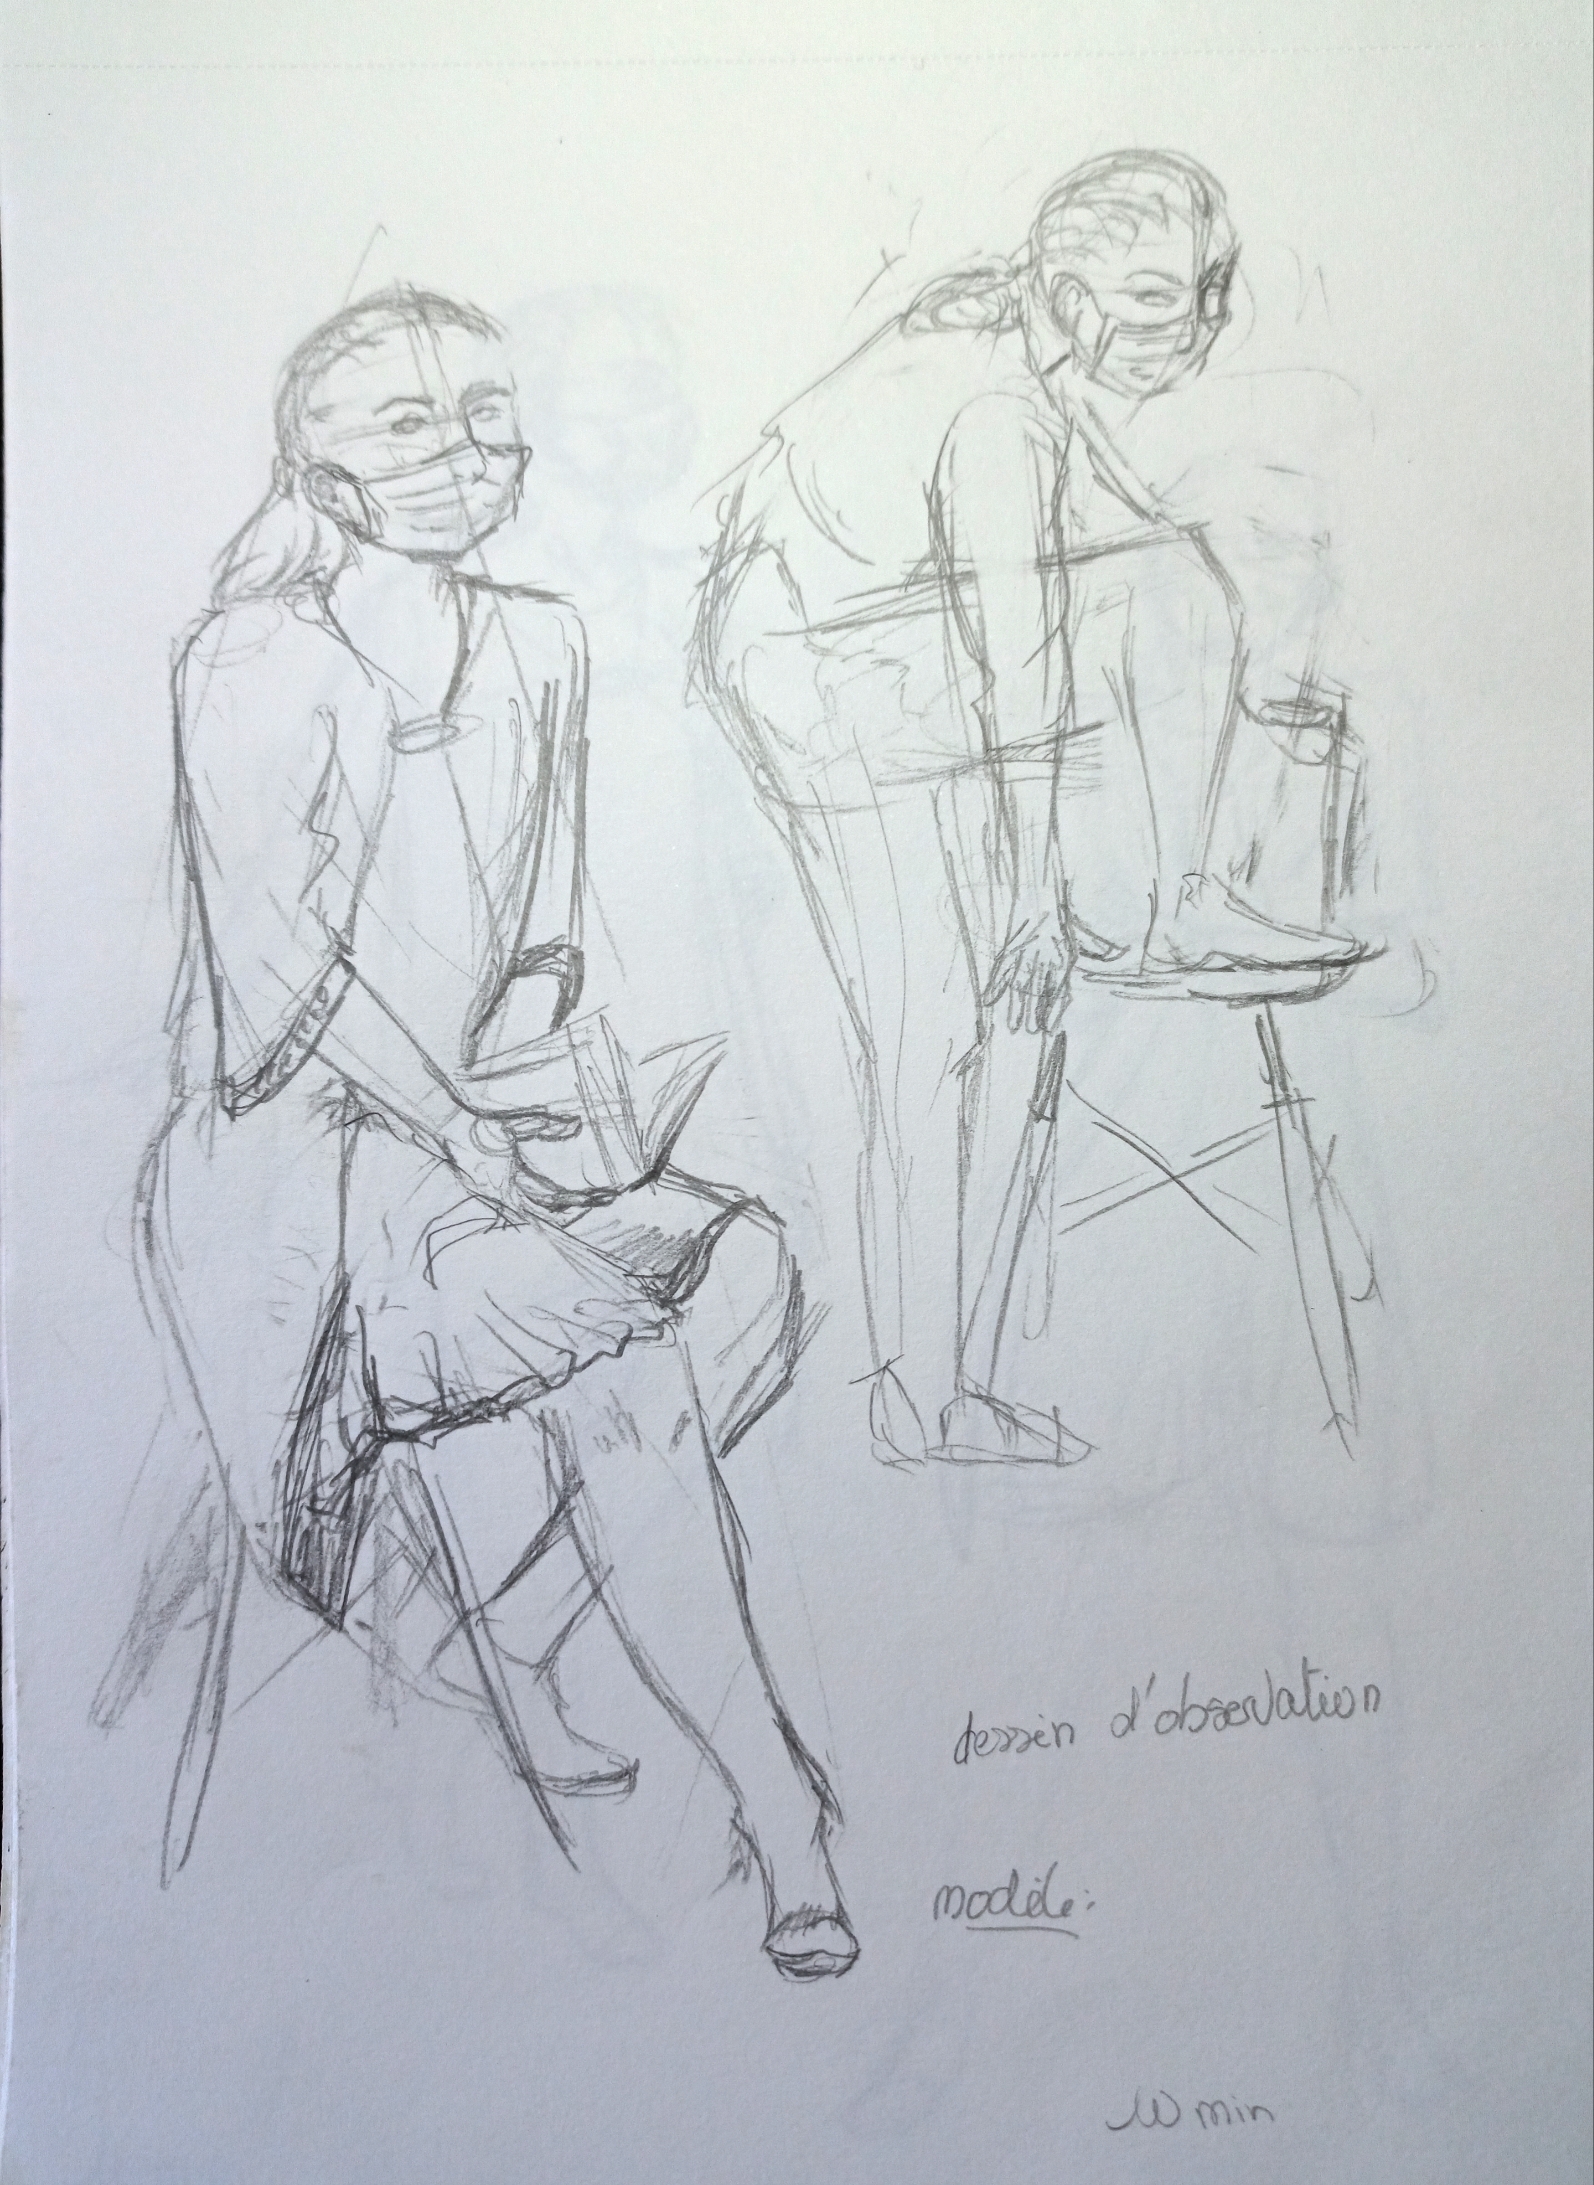 dessin d'observation
modèle:
10 min